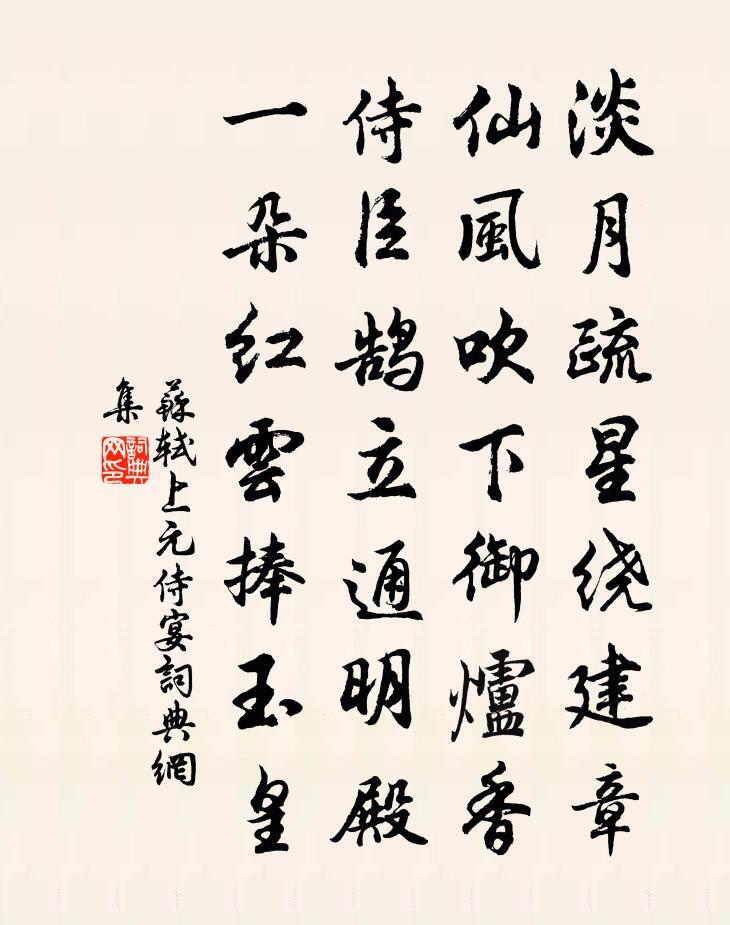 淡月疏星绕建章
仙風吹下御爐香
侍臣鹄立通明殿
一朵红雲捧玉皇
蘇軾上元侍宴詞典網
集
詞典
网印